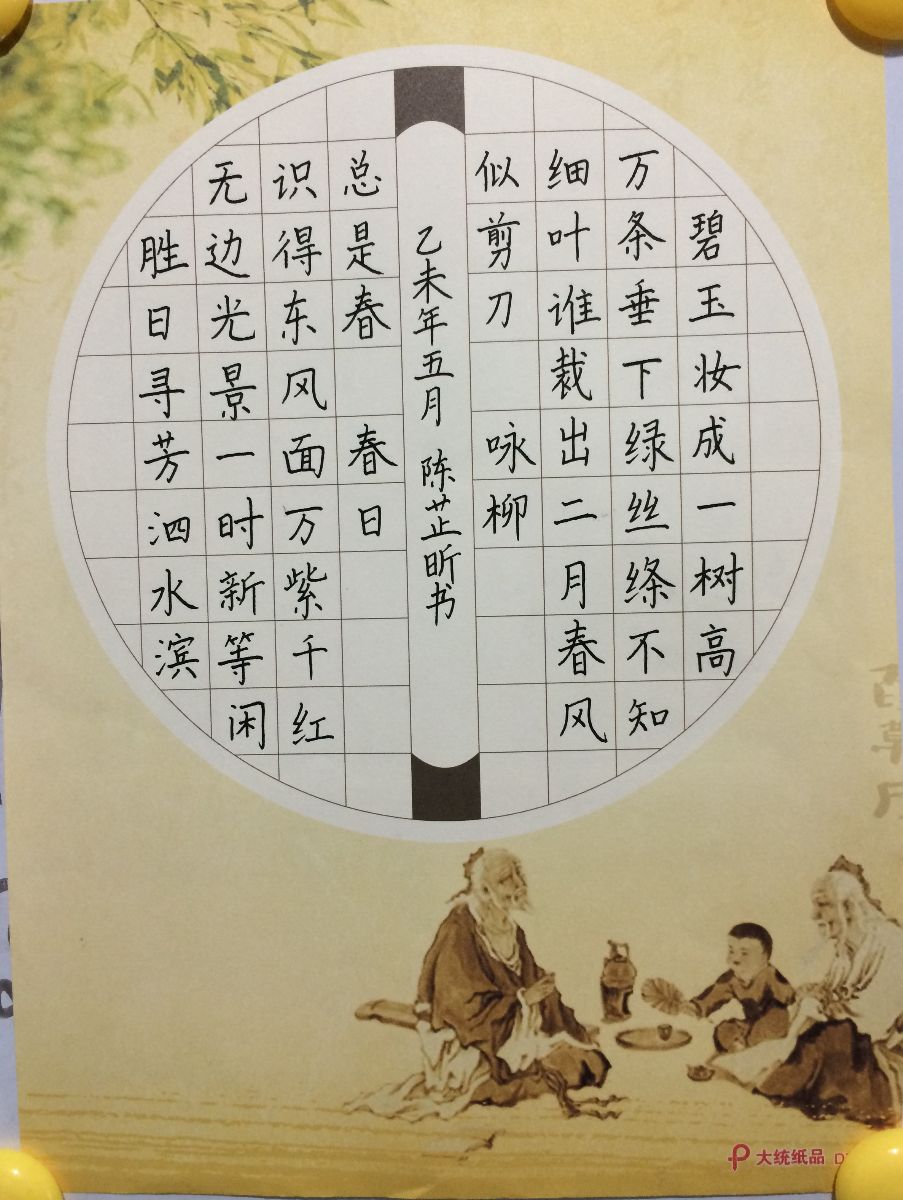 碧玉妆成一树高
万条垂下绿丝绦不知
细叶谁裁出二月春风
似剪刀 咏柳
胜日寻芳泗水滨
无边光景一时新等闲
识得东风面万紫千红
总是春 春日
乙未年五月 陈芷昕书
大统纸品